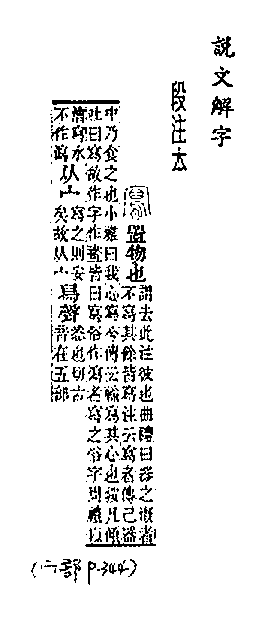 說文解字
段注本
寫 置物也 謂去此注彼也曲禮曰器之漑者
不寫其餘皆寫注云寫者傳己器
中乃食之也小雅曰我心寫兮傳云輸寫其心也按凡傾
吐曰寫故作字作畫皆曰寫俗作瀉者寫之俗字周禮以
澮寫水不作瀉 从宀 寫之則安矣故从宀 舄聲 悉也切古音在五部
(宀部 P.344)